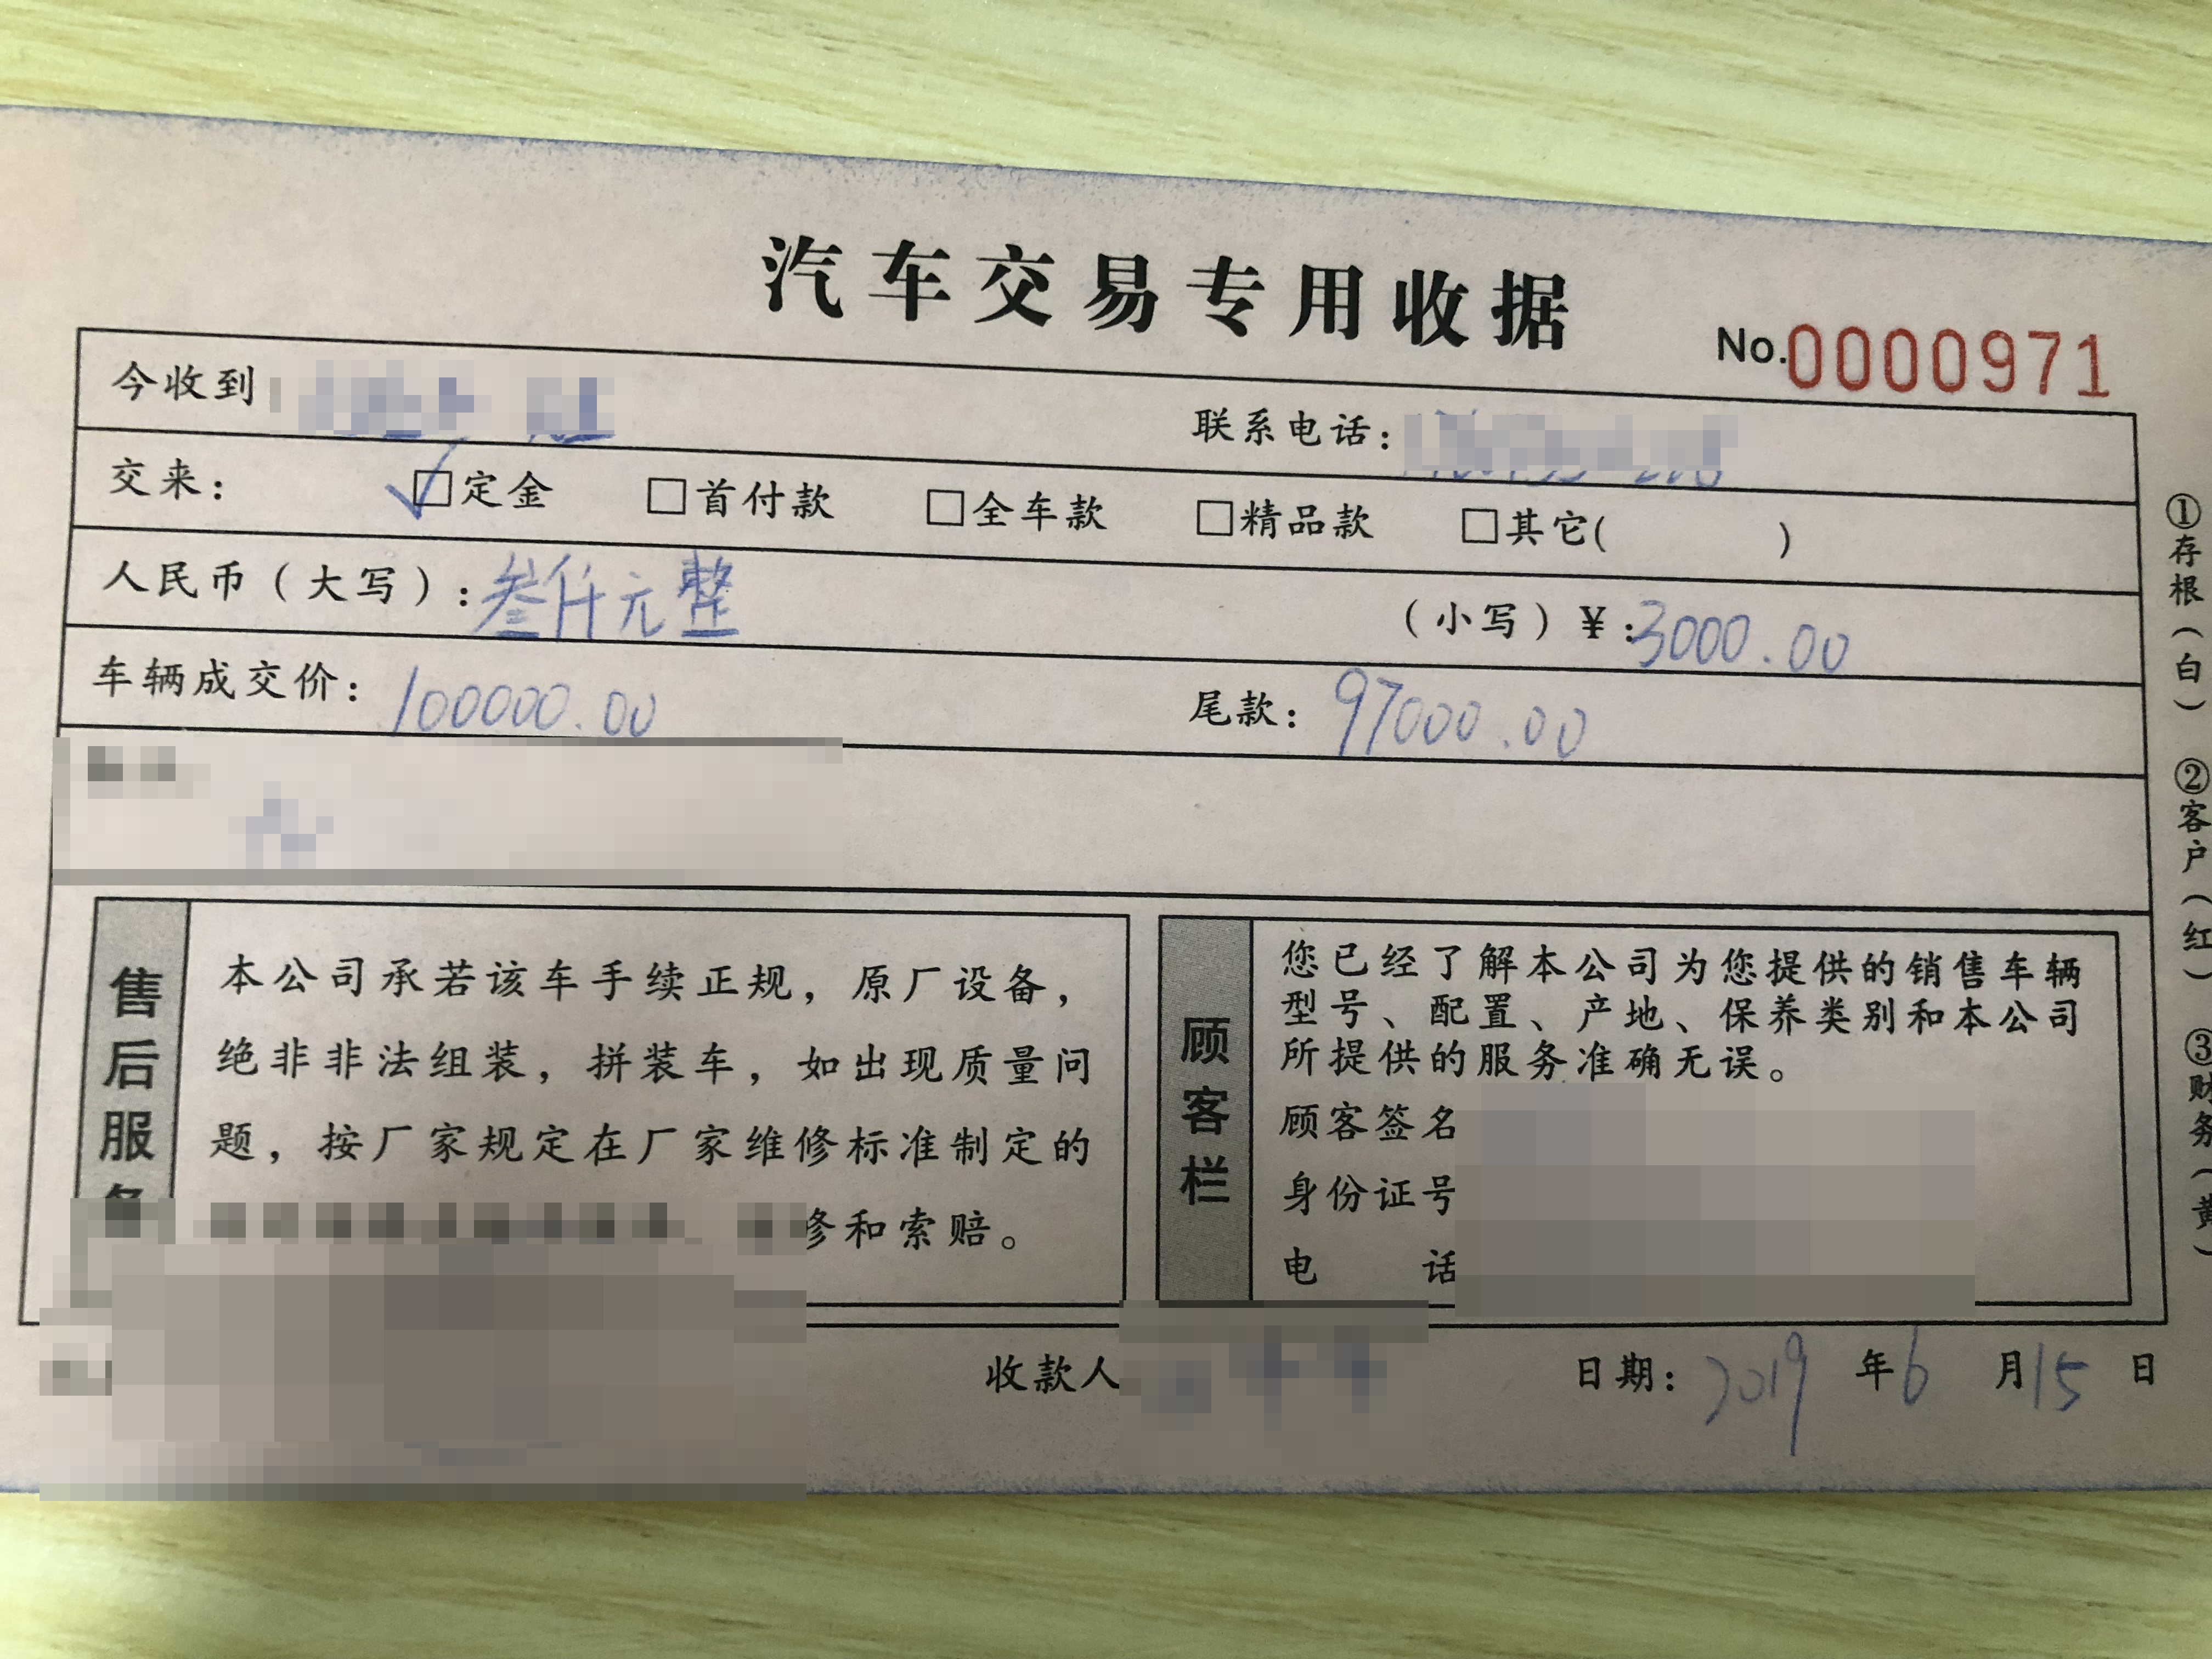 汽车交易专用收据
No.0000971
今收到 联系电话：
交来： ☑定金 □首付款 □全车款 □精品款 □其它( )
人民币（大写）：叁仟元整 （小写）¥：3000.00
车辆成交价：100000.00 尾款：97000.00
售后服务
本公司承若该车手续正规，原厂设备，
绝非非法组装，拼装车，如出现质量问
题，按厂家规定在厂家维修标准制定的
修和索赔。
顾客栏
您已经了解本公司为您提供的销售车辆
型号、配置、产地、保养类别和本公司
所提供的服务准确无误。
顾客签名
身份证号
电 话
收款人 日期：2019年6月15日
①存根（白） ②客户（红） ③财务（黄）